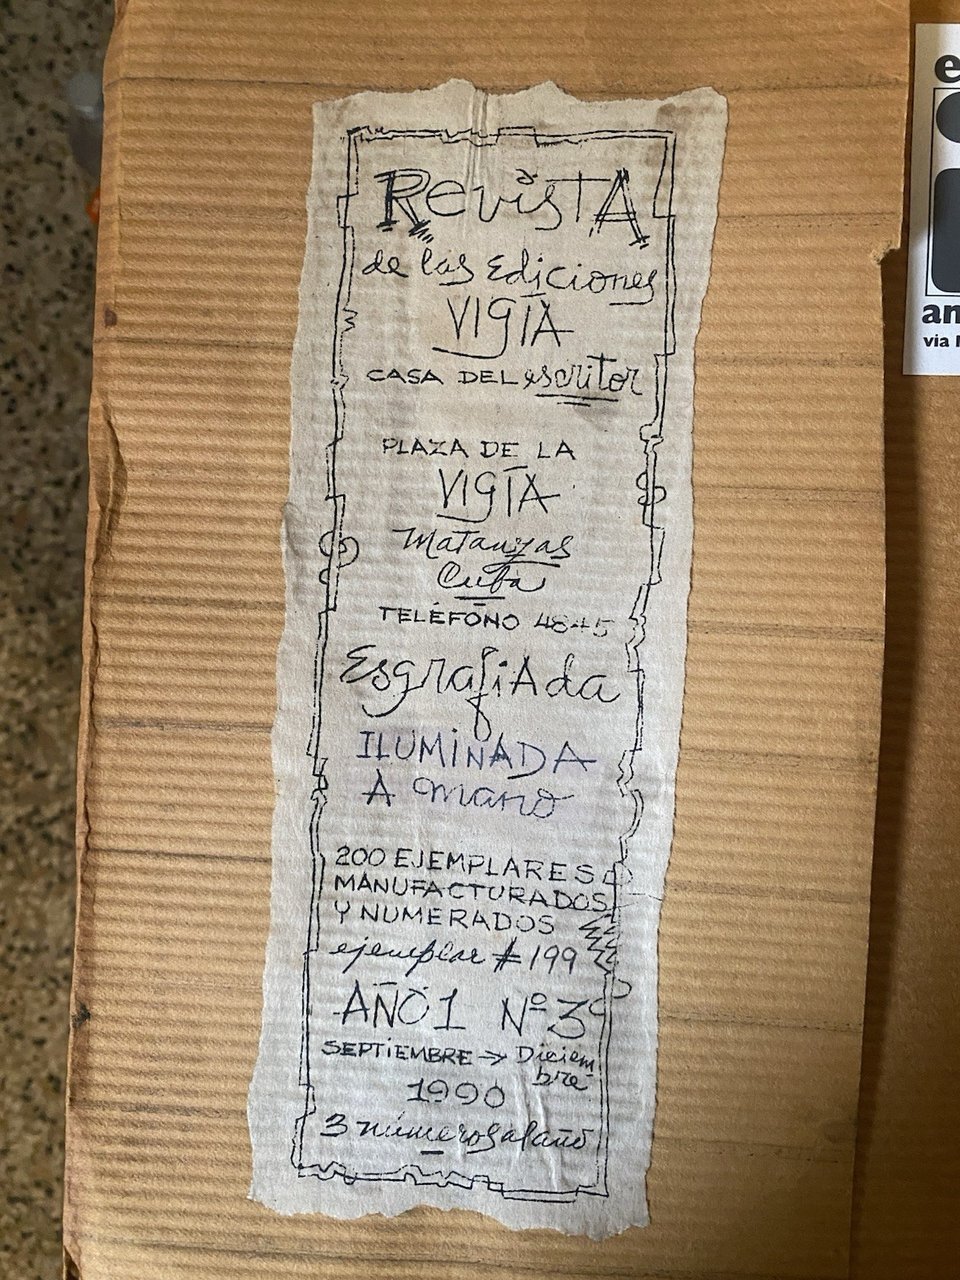 RevistA
de las Ediciones
VIGÍA
CASA DEL escritor
PLAZA DE LA
VIGÍA
Matanzas
Cuba
TELÉFONO 48-45
EsgrafiAda
ILUMINADA
A mano
200 EJEMPLARES
MANUFACTURADOS
Y NUMERADOS
ejemplar # 199
AÑO 1 Nº 3
SEPTIEMBRE → Diciem-
bre
1990
3 números al año
e
an
via